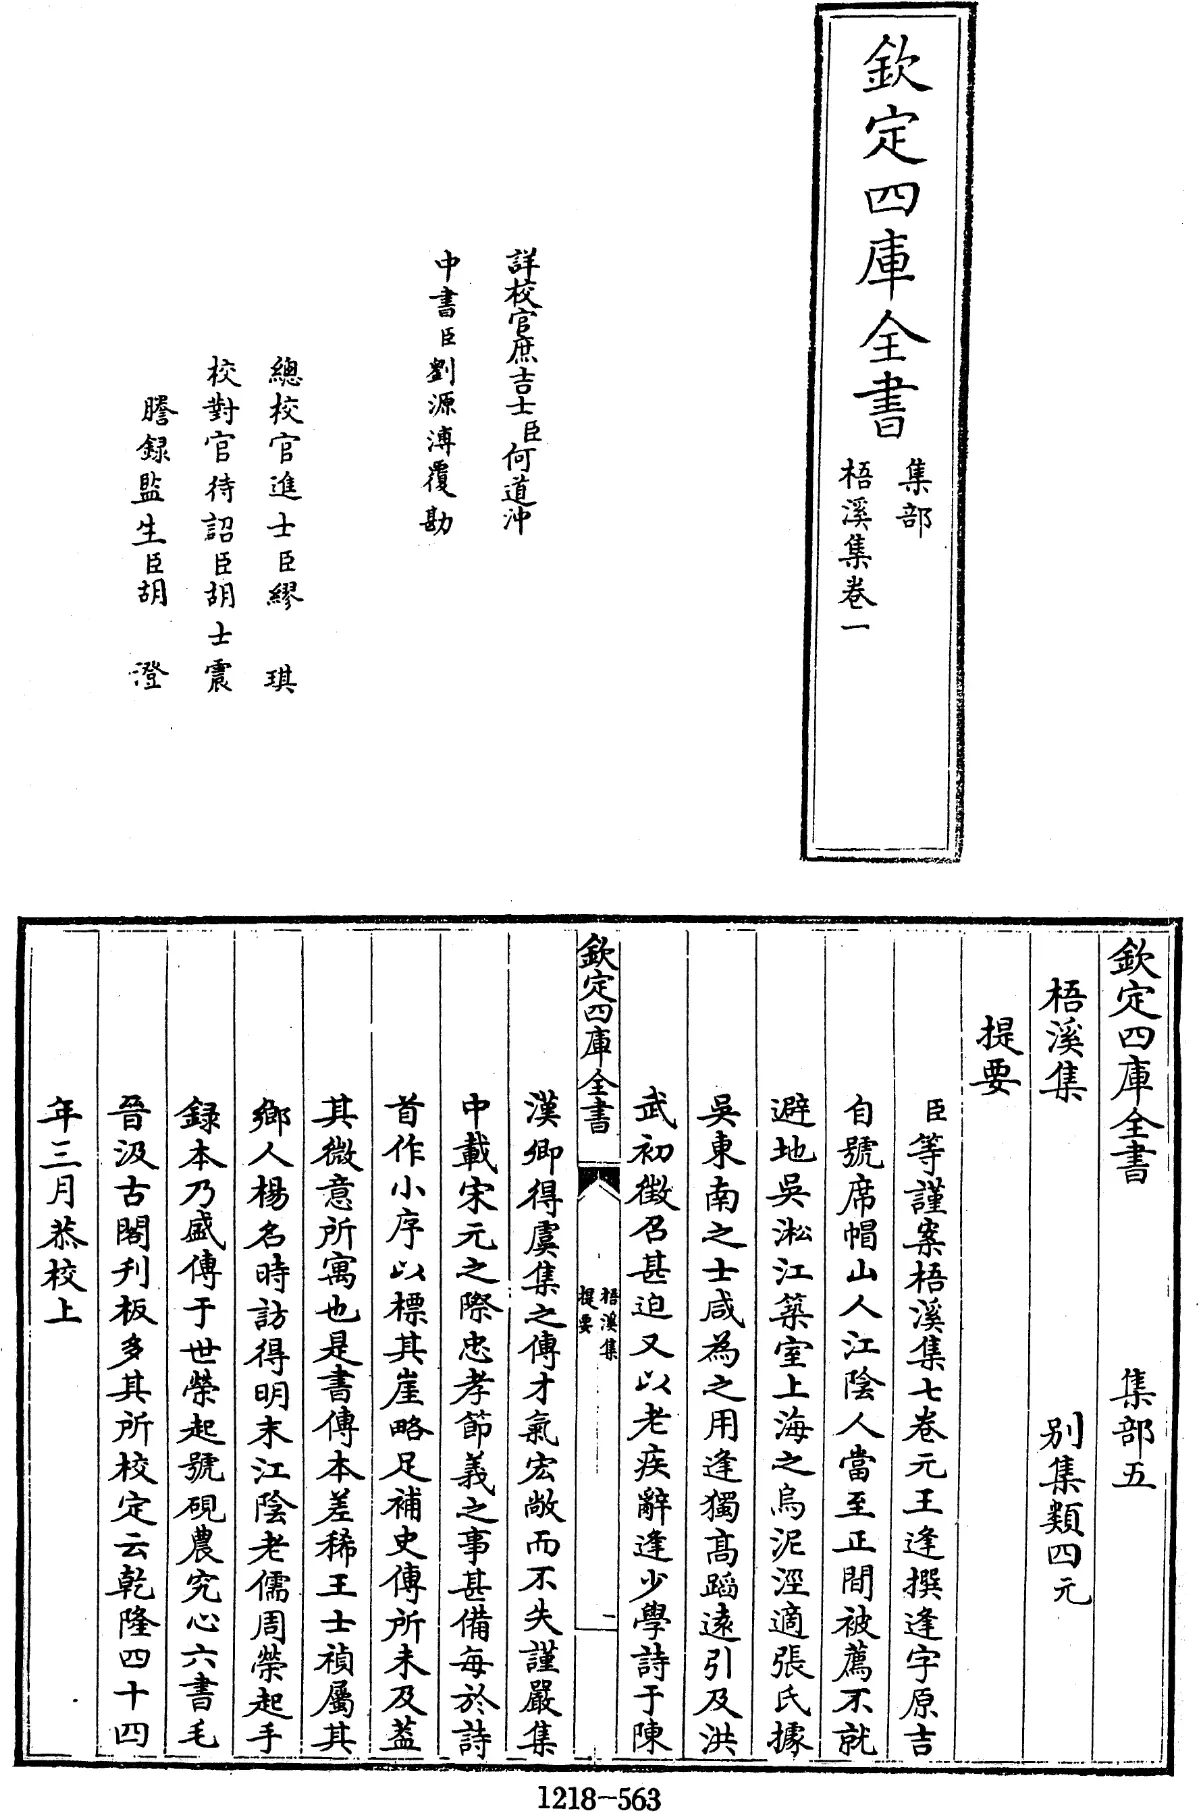 欽定四庫全書
集部
梧溪集卷一
詳校官庶吉士臣何道沖
中書臣劉源溥覆勘
總校官進士臣繆琪
校對官待詔臣胡士震
謄錄監生臣胡澄
欽定四庫全書 集部五
梧溪集 別集類四元
提要
臣等謹案梧溪集七卷元王逢撰逢字原吉
自號席帽山人江陰人當至正間被薦不就
避地吳淞江築室上海之烏泥涇適張氏據
吳東南之士咸為之用逢獨高蹈遠引及洪
武初徵召甚迫又以老疾辭逢少學詩于陳
欽定四庫全書
梧溪集
提要
一
漢卿得虞集之傳才氣宏敞而不失謹嚴集
中載宋元之際忠孝節義之事甚備每於詩
首作小序以標其崖略足補史傳所未及蓋
其微意所寓也是書傳本差稀王士禎屬其
鄉人楊名時訪得明末江陰老儒周榮起手
録本乃盛傳于世榮起號硯農究心六書毛
晉汲古閣刋板多其所校定云乾隆四十四
年三月恭校上
1218-563